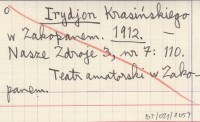 o Irydjon Krasińskiego
w Zakopanem. 1912. —
Nasze Zdroje 3, nr 7: 110.
Teatr amatorski w Zako-
panem.